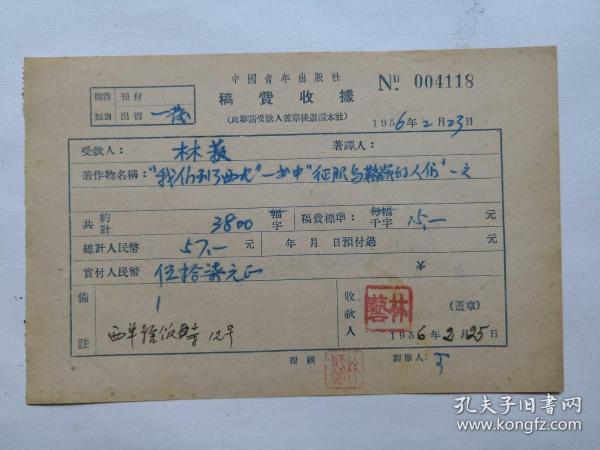 中國青年出版社
№ 004118
稿費收據
稿費類別 預付 出書 一
(此聯請受款人蓋章後退還本社)
1956年2月23日
受款人: 林藜 著譯人:
著作物名稱: "我們到了西北"一書中"征服烏鞘嶺的人們"一文
共約計 3800 幅字 稿費標準: 每幅千字 15.— 元
總計人民幣 57.— 元 年 月 日預付過 元
實付人民幣 伍拾柒元正 ¥
備註
西單 12号
收款人 林藝 (蓋章)
1956年2月25日
覆核 製單人:
孔夫子旧书网
www.kongfz.com